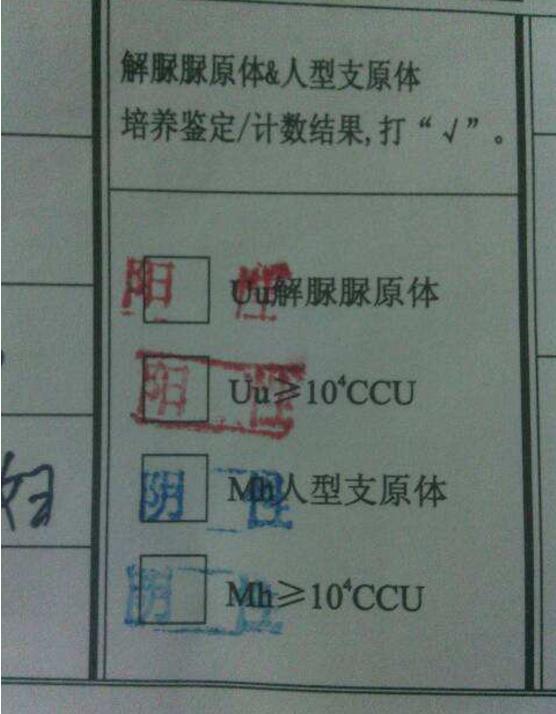 解脲脲原体&人型支原体
培养鉴定/计数结果,打“√”。
阳性 Uu解脲脲原体
阳性 Uu≥10⁴CCU
阴性 Mh人型支原体
阴性 Mh≥10⁴CCU
妇